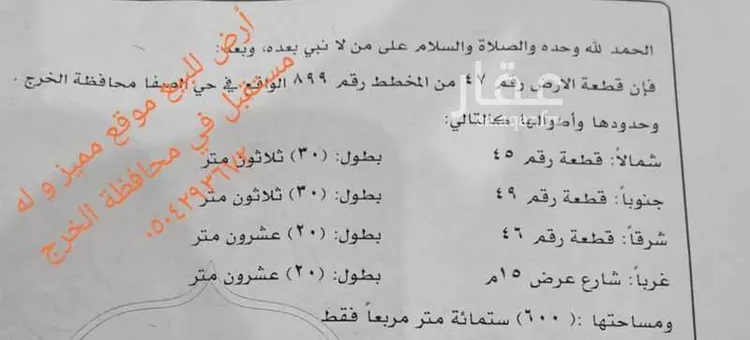 الحمد لله وحده والصلاة والسلام على من لا نبي بعده، وبعد:
فإن قطعة الارض رقم ٤٧ من المخطط رقم ٨٩٩ الواقع في حي الصفا محافظة الخرج .
وحدودها وأطوالها كالتالي:
شمالاً: قطعة رقم ٤٥ بطول: (٣٠) ثلاثون متر
جنوباً: قطعة رقم ٤٩ بطول: (٣٠) ثلاثون متر
شرقاً: قطعة رقم ٤٦ بطول: (٢٠) عشرون متر
غرباً: شارع عرض ١٥م بطول: (٢٠) عشرون متر
ومساحتها :( ٦٠٠) ستمائة متر مربعاً فقط
أرض للبيع موقع مميز و له
مستقبل في محافظة الخرج
عقار